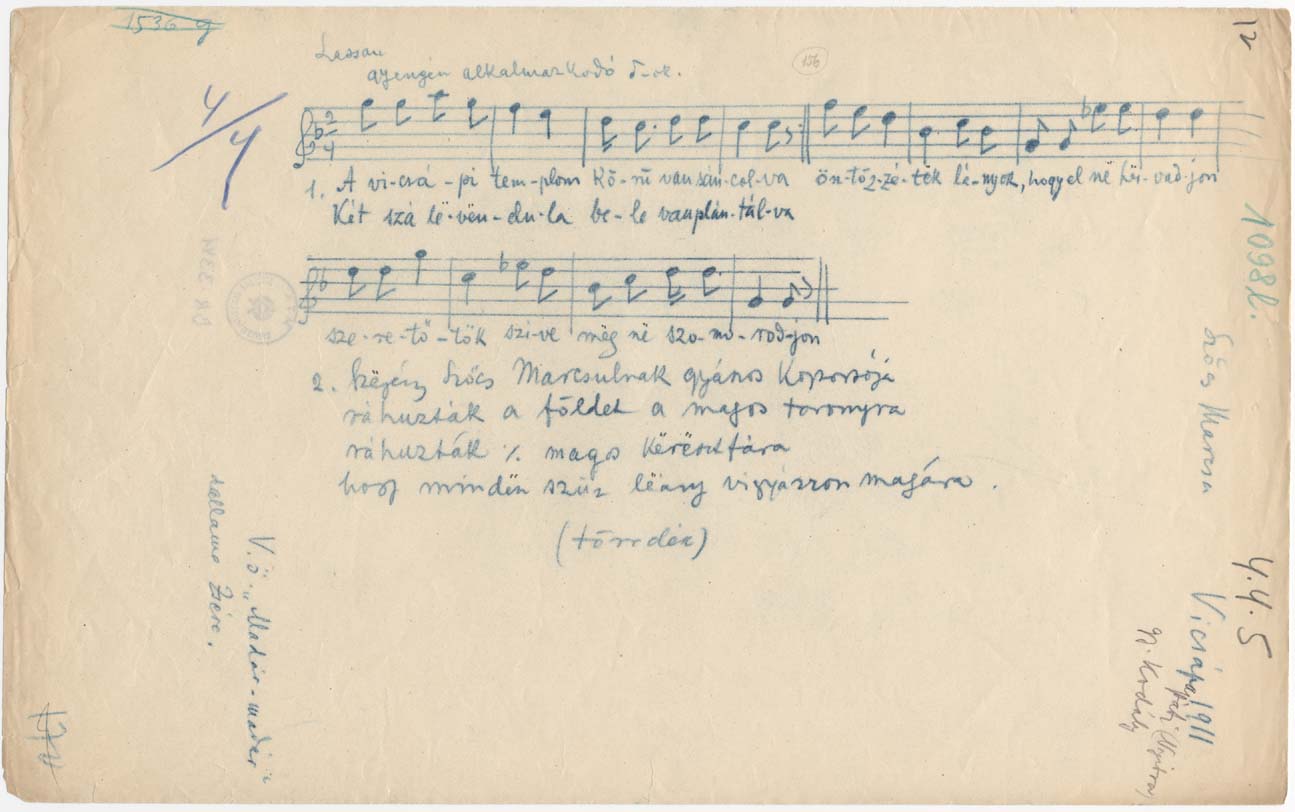 1536 g
12
Lassan
gyengén alkalmazkodó 5-ök.
156
4/4
2
4
1. A vi-csá-pi tem-plom kö-rű van sán-col-va ön-töz-zé-tëk lé-nyok, hogy el në hër-vad-jon
Két szá lë-vën-du-la be-le van plán-tál-va
1098 l.
sze-re-tő-tök szi-ve mëg në szo-mo-rod-jon
2. Szëgény Szőcs Marcsulnak gyános koporsója
ráhuzták a földet a magos toronyra
ráhuzták ٪ magos këresztfára
hogy mindën szűz lëány vigyázzon magára.
(töredék)
Szőcs Marcsa
4.4.5
Vicsápapáti (Nyitra) 1911
Gy. Kodály
V.ö. „Madár-madár"
dallama Zsére.